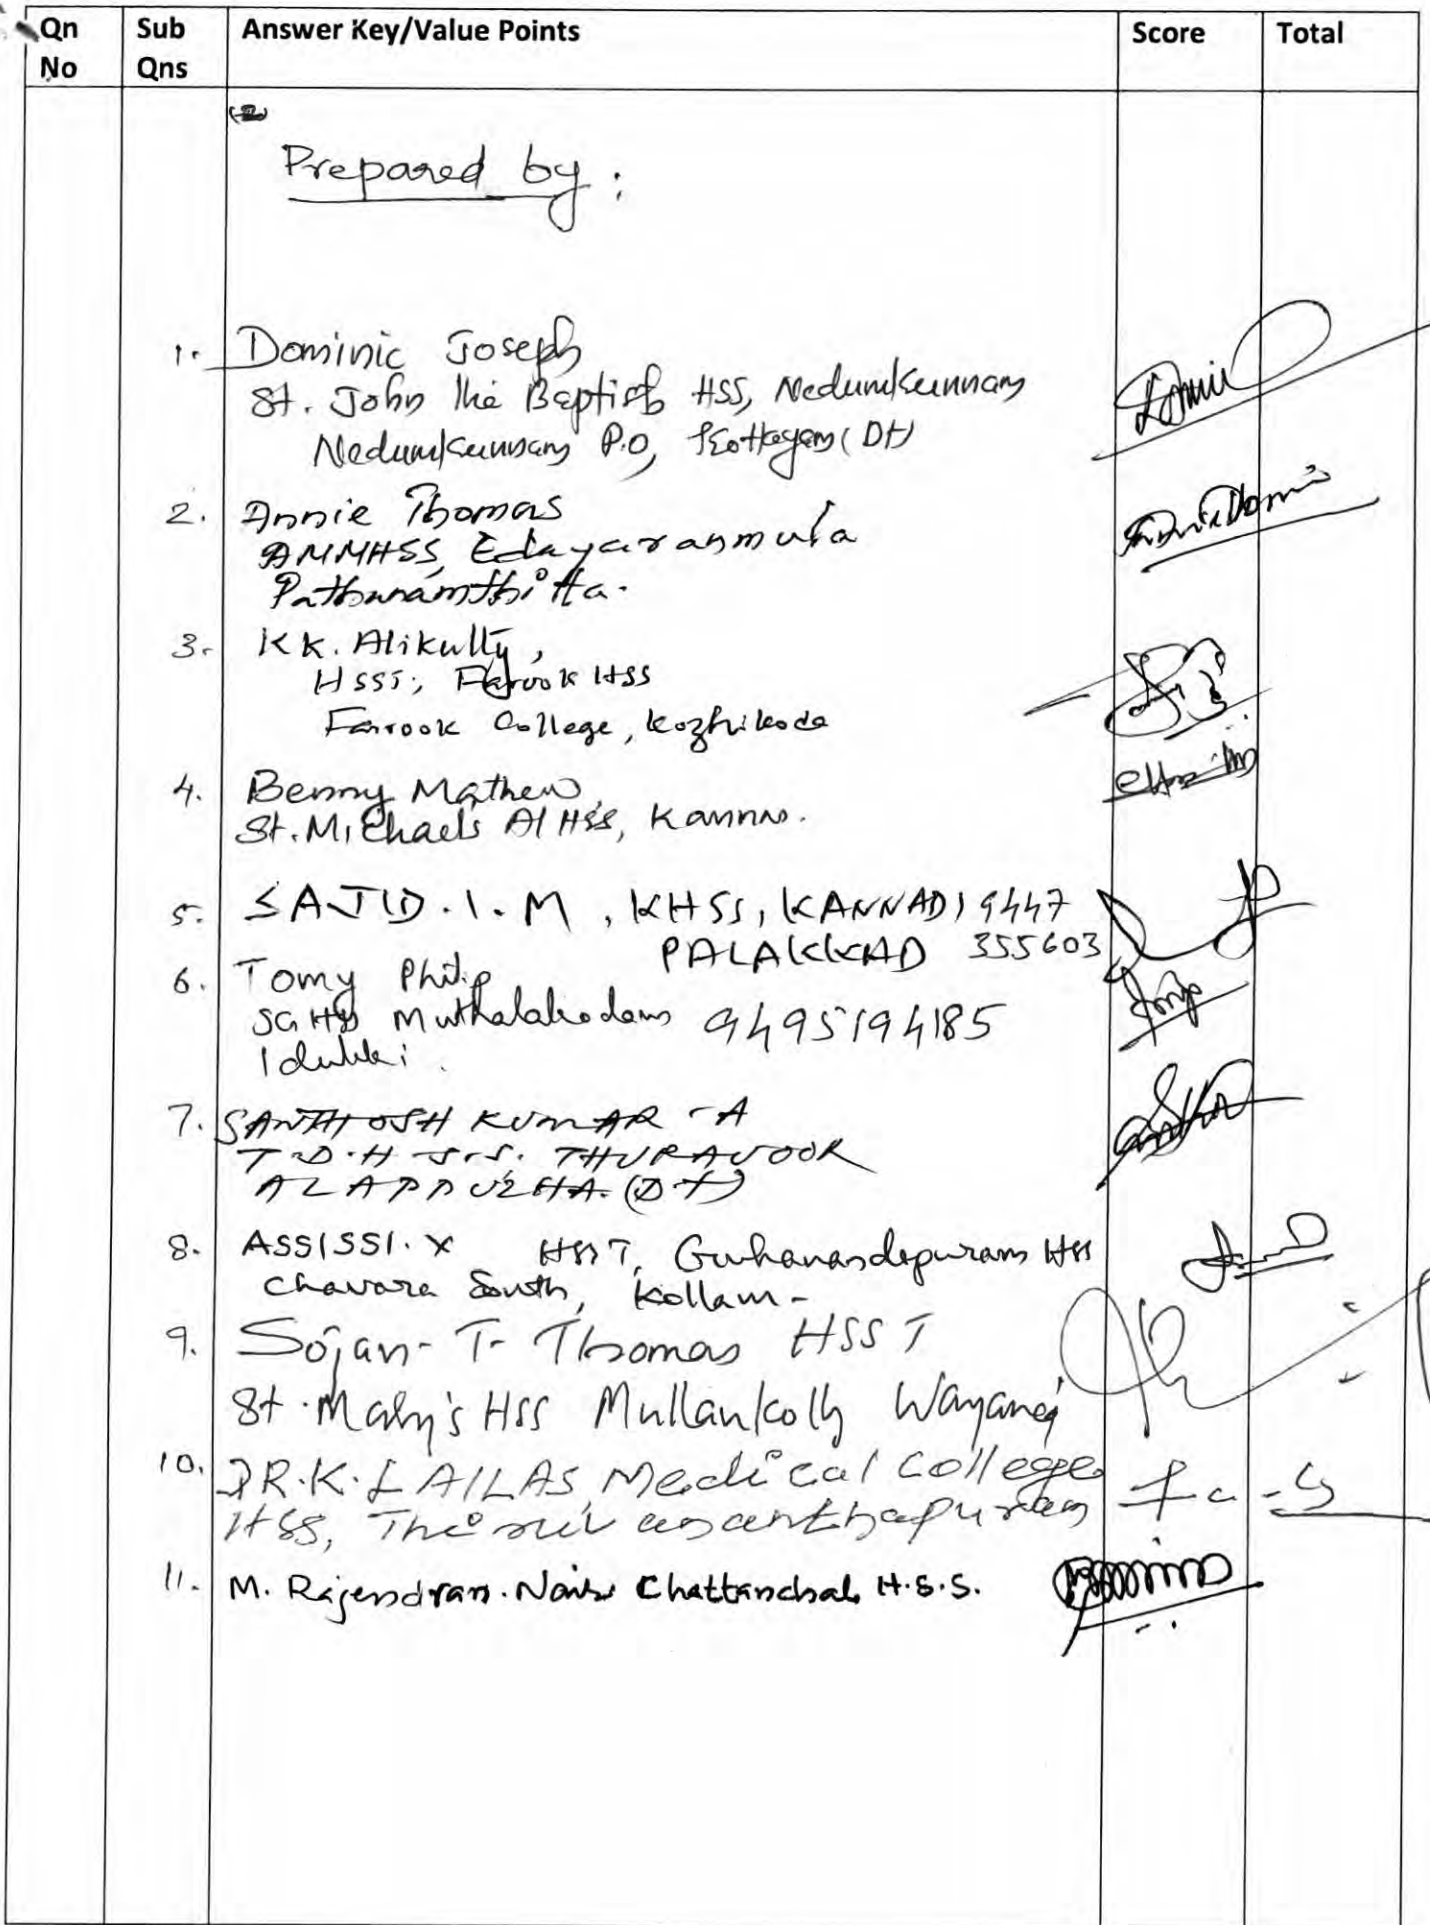 Qn No Sub Qns Answer Key/Value Points Score Total
Prepared by :
1. Dominic Joseph
St. John the Baptist HSS, Nedumkunnam
Nedumkunnam P.O, Kottayam (Dt)
2. Annie Thomas
AMMHSS, Edayaranmula
Pathanamthitta.
3. K K. Alikutty,
HSST, Farook HSS
Farook College, Kozhikode
4. Benny Mathew
St. Michaels AI HSS, Kannur.
5. SAJID. I. M, KHSS, KANNADI 9447
PALAKKAD 355603
6. Tomy Philip
SGHSS Muthalakodam 9495194185
Idukki.
7. SANTHOSH KUMAR - A
T. D. H. S. S. THURAVOOR
ALAPPUZHA (Dt)
8. ASSISSI. X HSST, Guhanandapuram HSS
Chavara South, Kollam -
9. Sojan - T - Thomas HSST
St. Mary's HSS Mullankolly Wayanad
10. DR. K. LAILAS, Medical College
HSS, Thiruvananthapuram
11. M. Rajendran. Nair Chattanchal H.S.S.